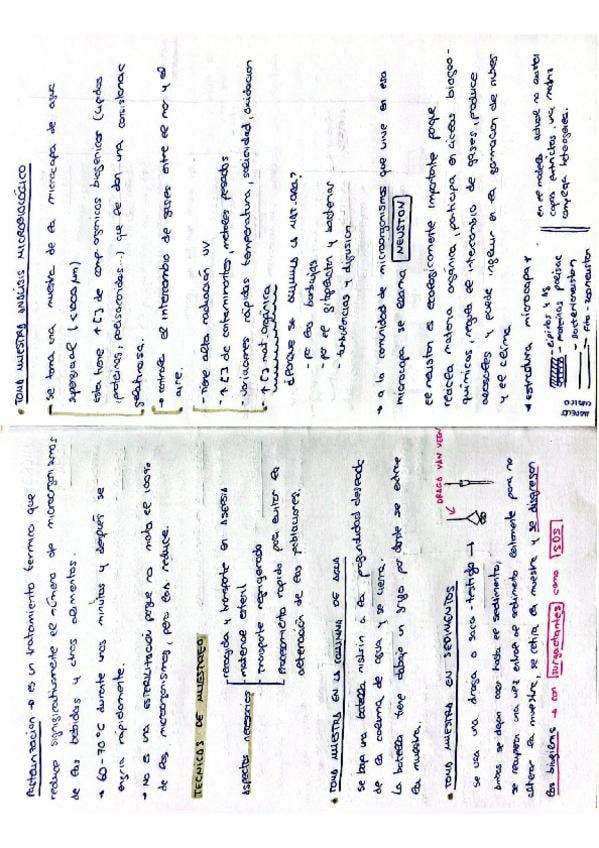 Pasteurización → es un tratamiento térmico que
reduce significativamente el número de microorganismos
de las bebidas y otros alimentos.
→ 60-70°C durante unos minutos y después se
enfría rápidamente.
→ No es una ESTERILITACIÓN porque no mata el 100%
de los microorganismos, pero los reduce.
TÉCNICAS DE MUESTREO
Aspectos necesarios
recogida y transporte en ASEPSIA
material estéril
transporte refrigerado
procesamiento rápido para evitar la
alteración de las poblaciones.
• TOMA MUESTRA EN LA COLUMNA DE AGUA
se baja una botella niskin a la profundidad deseada
de la columna de agua y se cierra.
La botella tiene debajo un grifo por donde se extrae
la muestra.
• TOMA MUESTRA EN SEDIMENTOS
DRAGA VAN VEEN
se usa una draga o saca-testigo →
ambas se dejan caer hasta el sedimento,
se recupera una vez entra el sedimento lentamente para no
alterar la muestra, se retira la muestra y se disgregan
los biofilms → con surfactantes como SDS
• TOMA MUESTRA ANÁLISIS MICROBIOLÓGICO
Se toma una muestra de la microcapa de agua
superficial (<1000 µm)
esta tiene ↑[ ] de comp. orgánicos biogénicos (lípidos
proteínas, polisacáridos...) que le dan una consistencia
gelatinosa.
→ controla el intercambio de gases entre el mar y el
aire.
- tiene alta radiación UV
- ↑[ ] de contaminantes, metales pesados
- variaciones rápidas temperatura, salinidad, oxidación
↑[ ] mat. orgánica
¿Porque se acumula la MAT. ORG?
- por las burbujas
- por el fitoplancton y bacterias
- turbulencias y difusión
→ a la comunidad de microorganismos que vive en esa
microcapa se llama NEUSTON
el neuston es ecológicamente importante porque
recicla materia orgánica, participa en ciclos biogeo-
químicos, regula el intercambio de gases, produce
aerosoles y puede influir en la formación de nubes
y el clima.
→ estructura microcapa →
MODELO CLÁSICO
lípidos + AG
proteínas polisac
- Bacterioneuston
- Fito-zooneuston
en el modelo actual no existen
capas estrictas, una matriz
compleja heterogénea.